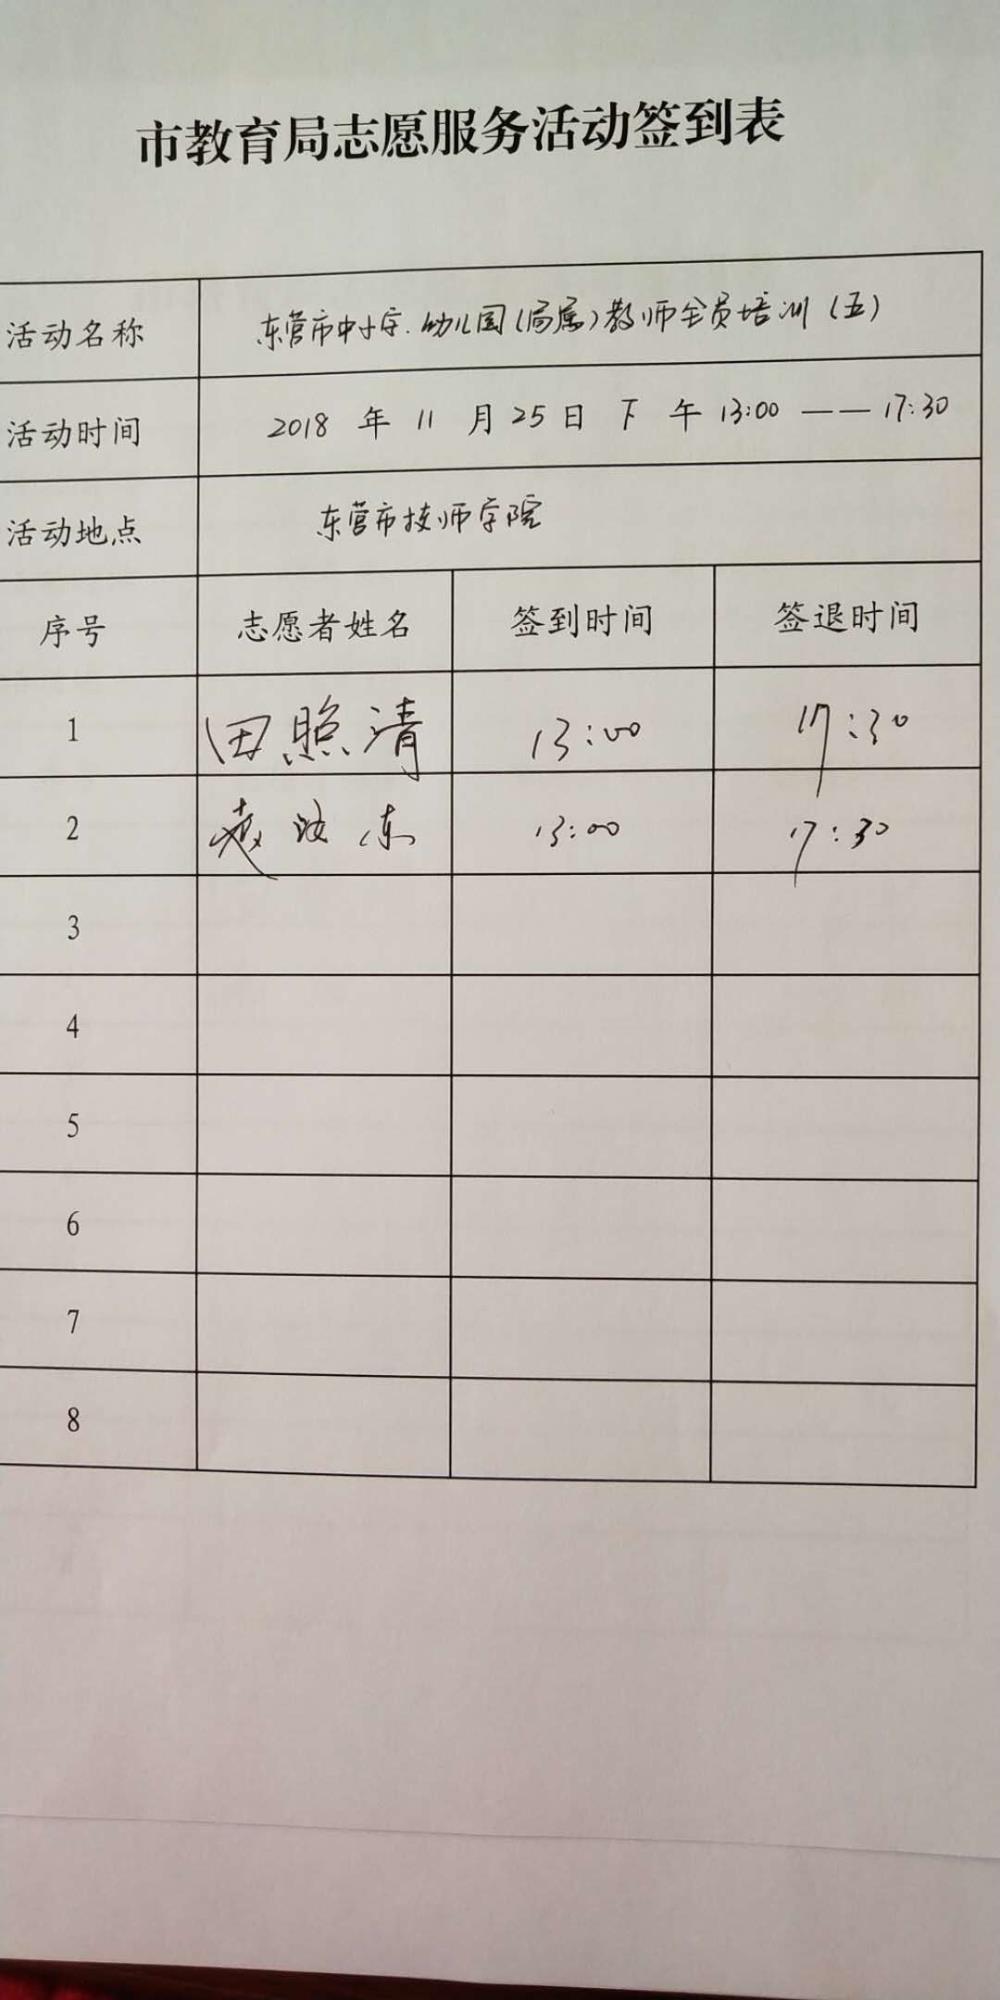 市教育局志愿服务活动签到表
活动名称 东营市中小学.幼儿园(局属)教师全员培训(五)
活动时间 2018 年 11 月 25 日 下 午 13:00 —— 17:30
活动地点 东营市技师学院
序号 志愿者姓名 签到时间 签退时间
1 田照清 13:00 17:30
2 13:00 17:30
3
4
5
6
7
8